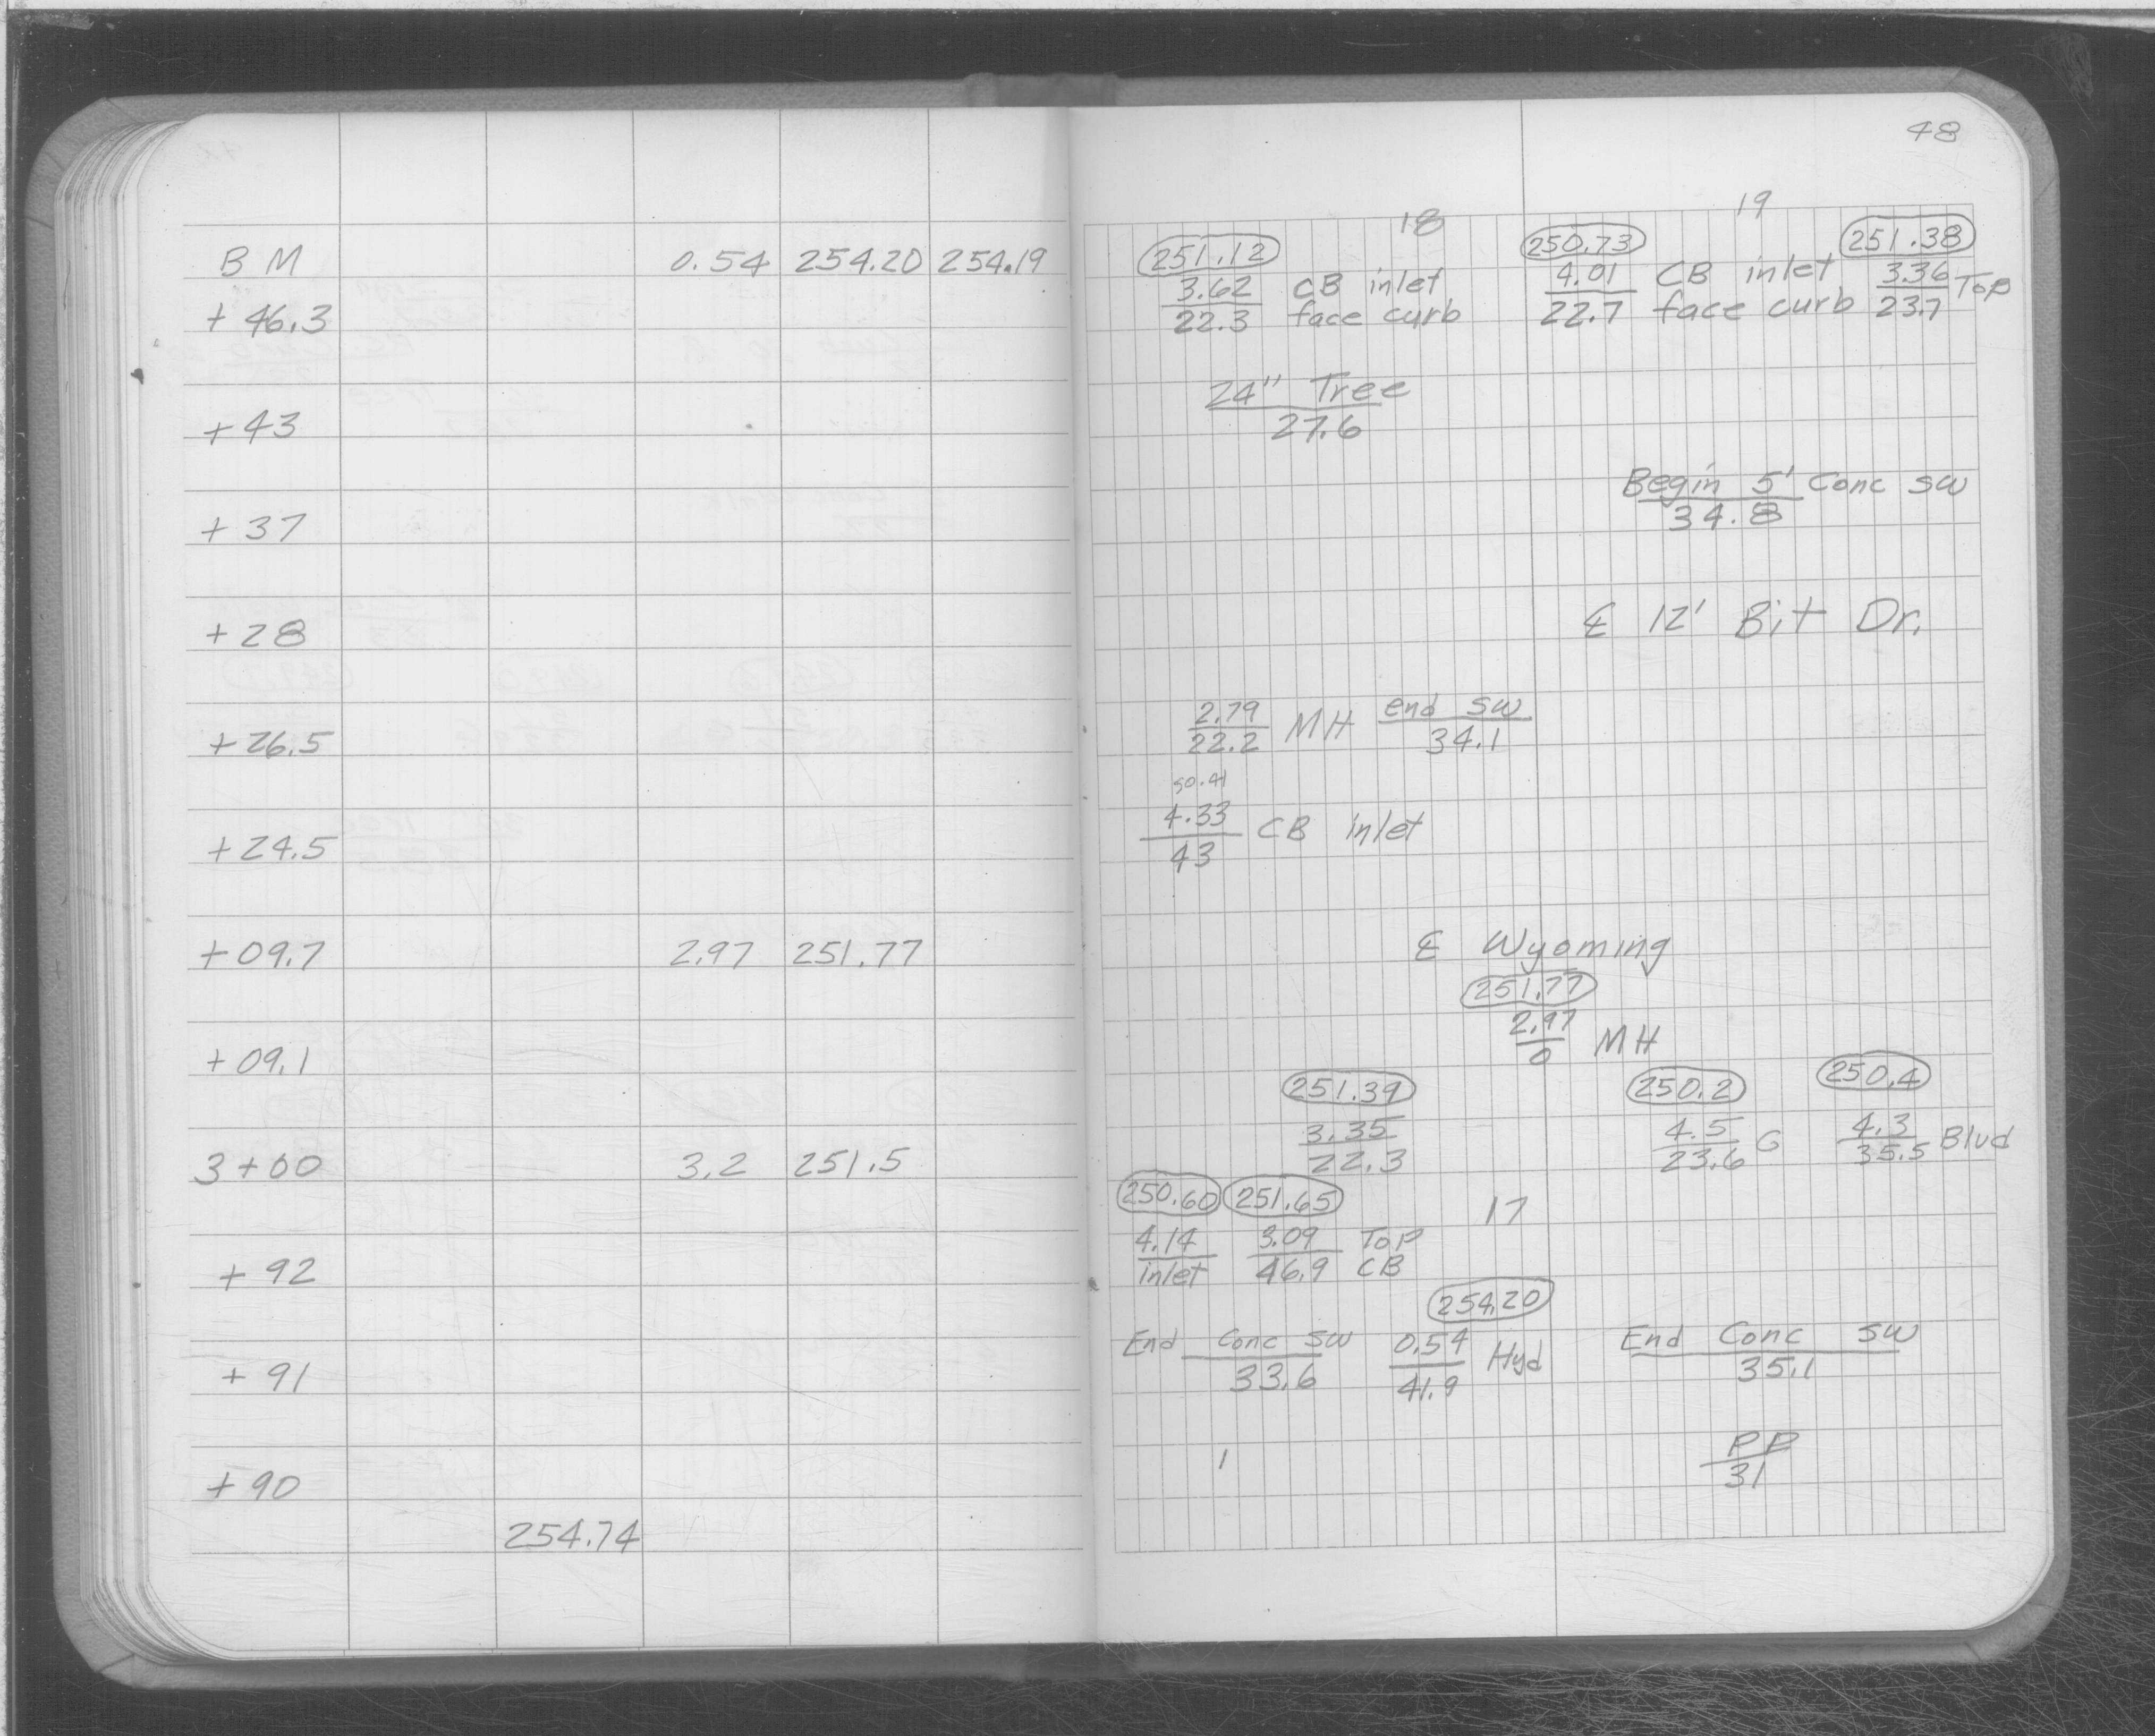 48
18 19
BM 0.54 254.20 254.19
251.12 250.73 251.38
3.62 CB inlet 4.01 CB inlet 3.36 Top
+ 46.3
22.3 face curb 22.7 face curb 23.7
24" Tree
+ 43 27.6
Begin 5' Conc SW
+ 37 34.8
+ 28 ℄ 12' Bit Dr.
2.79 MH end SW
+ 26.5 22.2 34.1
50.41
4.33 CB inlet
+ 24.5 43
+ 09.7 2.97 251.77 ℄ Wyoming
251.77
2.97
+ 09.1 0 MH
251.39 250.2 250.4
3.35 4.5 G 4.3 Blvd
3+00 3.2 251.5 22.3 23.6 35.5
250.60 251.65 17
4.14 3.09 Top
+ 92 inlet 46.9 CB
254.20
End Conc SW 0.54 Hyd End Conc SW
+ 91 33.6 41.9 35.1
PP
+ 90 31
254.74